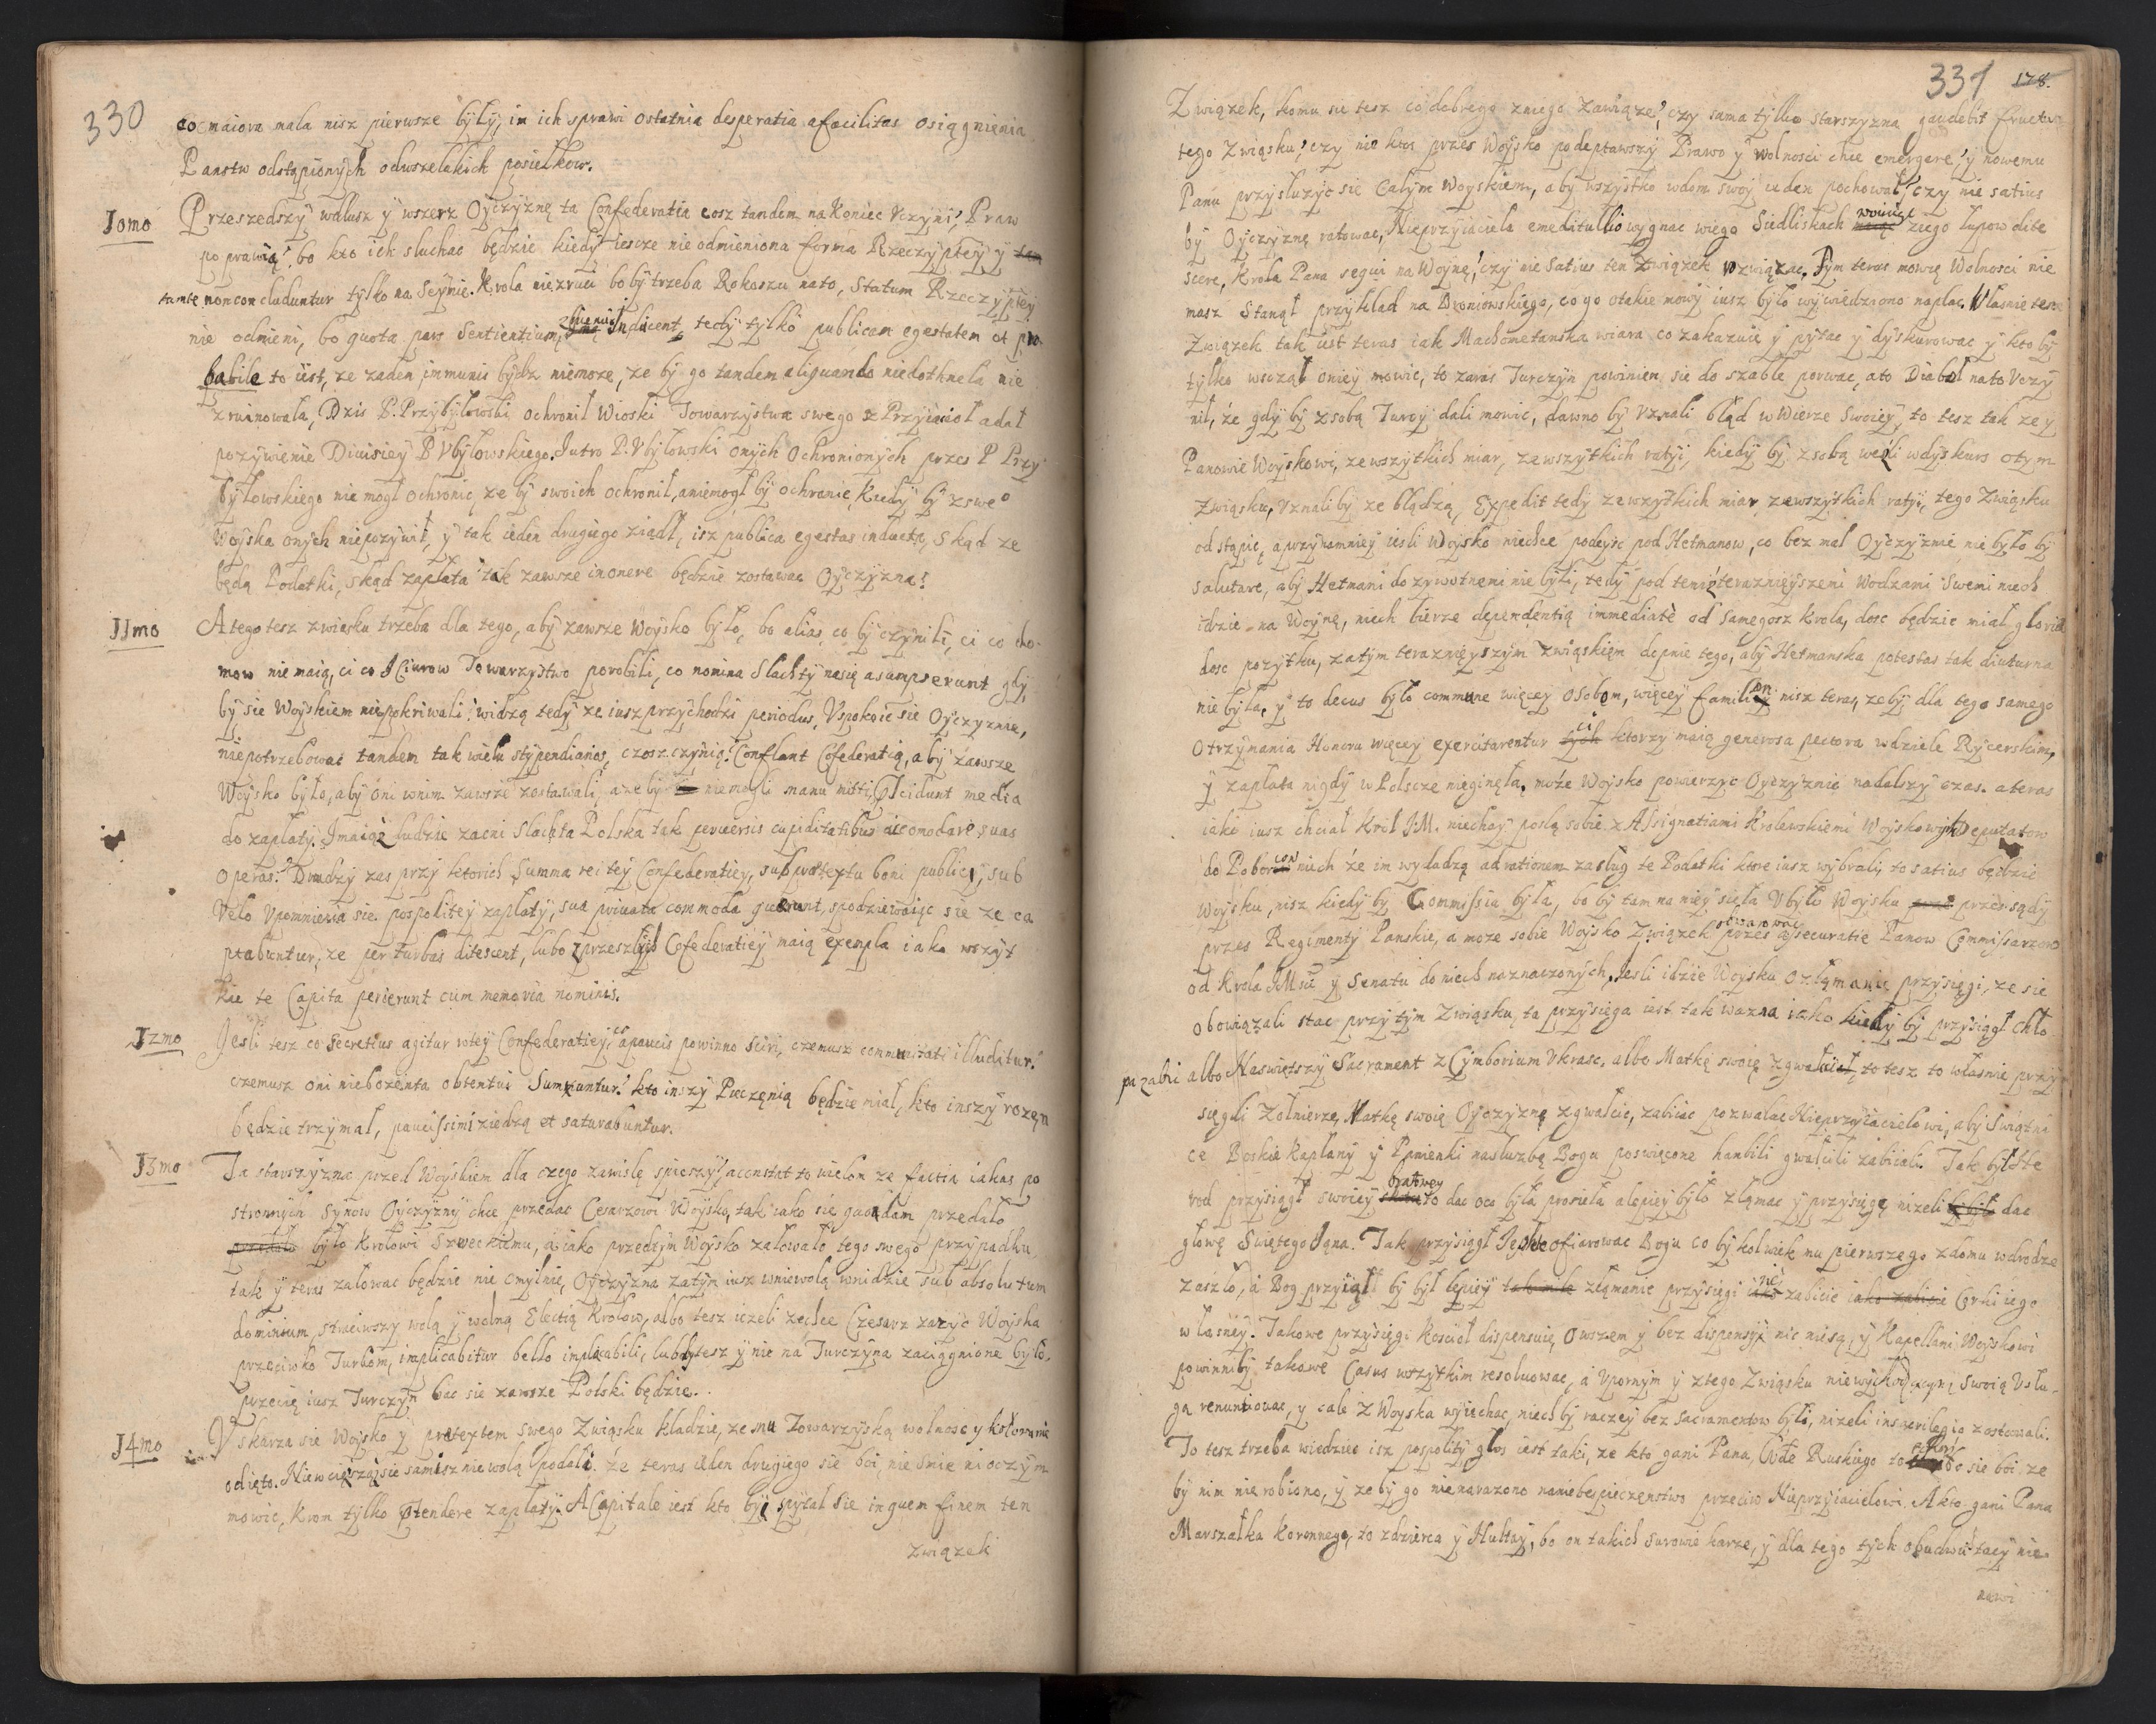 330
co maiora mala nisz pierwsze były, in ich sprawi ostatnia desperatia a facilitas osiągnienia
Panstw odstąpionych odwszelakich posiłkow.
J0mo Przeszedszy wdłusz y wszerz Oyczyznę ta Confederatia cosz tandem na Koniec Vczyni? Praw
poprawią? bo kto ich słuchac będzie kiedy iescze nie odmieniona forma Rzeczyptey y
tamte non concluduntur tylko na Seymie. Krola niezruci boby trzeba Rokoszu nato, Statum Rzeczyptey
nie odmieni, bo quota pars Sentientium, Inducent tedy tylko publicam egestatem et pro
babile to iest, ze zaden immunis bydz niemoze, ze by go tandem aliquando niedothneła nie
zruinowała, Dzis P. Przybyłowski ochronił Wioski Towarzystwa swego z Przyiacioł a dał
pozywienie Diuisiey P. Vbyłowskiego. Jutro P. Vbyłowski onych Ochronionych przes P Przy
byłowskiego nie mogł ochronic, ze by swoich ochronił, a niemogł by ochronic, Kiedy by zsweo
Woyska onych niepozywił, y tak ieden drugiego ziadł, isz publica egestas inducta, Skąd ze
będą Podatki, skąd zapłata? tak zawsze in onere będzie zostawac Oyczyzna!
JJmo A tego tesz zwiasku trzeba dla tego, aby zawsze Woysko było, bo alias co by czynili, ci co do-
mow nie maią, ci co z Ciurow Towarzystwo porobili, co nomina Slachty nasię asumpserunt gdy
by sie Woyskiem niepokriwali? widzą tedy ze iusz przychodzi periodus, Vspokoie sie Oyczyznie,
niepotrzebowac tandem tak wielu stypendiarios, czosz czynią? Conflant Cofederatią, aby zawsze
Woysko było, aby oni wnim zawsze zostawali, a ze by niemogli manu mitti, Occidunt media
do zapłaty. Jmaiąż ludzie zacni Slachta Polska tak peruersis cupiditatibus accomodare suas
operas? Drudzy zas przy ktorich Summa rei tey Confederatiey, sub pretextu boni publici, sub
Velo Vpomnienia sie pospolitey zapłaty, sua priuata commoda quærunt, spodziewaiąc sie ze ca
ptabuntur, ze per turbas ditescent, lubo z przeszłych Cofederatiey maią exempla iako wszyt
kie te Capita perierunt cum memoria nominis.
J2mo Jesli tesz co Secretius agitur wtey Confederatiey, et apaucis powinno sciri, czemusz communitati illuditur?
czemusz oni niebożęnta obtentui Sumuntur? kto inszy Pieczęnią będzie miał, kto inszy rozęn
będzie trzymał, paucissimi ziedzą et saturabuntur.
J3mo Ta starszyzna przed Woyskiem dla czego zawisłę spieszy? a constat to wielom ze factia iakas po
stronnych Synow Oyczyzny chce przedac Cesarzowi Woysko, tak iako się quondam przedało
było Krolowi Szweckiemu, a iako przedtym Woysko załowało tego swego przypadku,
tak y teras załowac będzie nie omylnie, Oyczyzna zatym iusz wniewolą wnidzie sub absolutum
dominium, straciwszy wolą y wolną Electią Krolow, albo tesz iezeli zechce Cesarz zazyc Woyska
przeciwko Turkom, implicabitur bello implacabili, lubbytesz y nie na Turczyna zaciągnione było,
przecię iusz Turczyn bac sie zawsze Polski będzie.
J4mo Vskarza sie Woysko y pretextem swego Zwiąsku kładzie, ze mu Towarzyską wolnosc y koło ranie
odięto. Niewcięszaż sie samisz niewolą podali? że teras ieden drugiego sie boi, nie smie ni oczym
mowic, krom tylko ptendere zapłaty. A Capitale iest kto by spytał sie in quem finem ten
związek
331 178.
Związek, komu sie tesz co dobrego zniego zawiąze? czy sama tylko Starszyzna gaudebit fructu
tego Zwiąsku? czy nie ktos przes Woysko podeptawszy Prawo y wolnosci chce emergere? y nowemu
Panu przysłuzyc sie Całym Woyskiem, aby wszystko wdom swoy ieden pochował? czy nie satius
by Oyczyznę ratowac, Nieprzyiaciela emeditullio wygnac wiego Siedliskach woiuiąc ziego łupow dite
scere, Krola Pana sequi na Woynę? czy nie Satius ten Związek rozwiązac, Tym teras mowię Wolnosci nie
masz Stanął przykład na Broniowskiego, co go otakie mowy iusz było wywiedziono naplac. Własnie ten
Związek tak iest teras iak Machometanska wiara co zakazuie y pytac y dyskurowac y kto by
tylko wsczął oniey mowic, to zaras Turczyn powinien sie do szable porwac, ato Diabol nato Vczy
nił, że gdy by zsobą Turcy dali mowic, dawno by Vznali błąd wwierze swoiey, to tesz tak ze y
Panowie Woyskowi, zewszytkich miar, zawszytkich ratyi, kiedy by zsobą weszli wdyskurs otym
Zwiąsku, Vznaliby ze błądzą, Expedit tedy zewszytkich miar, zewszytkich ratyi, tego Zwiąsku
odstąpic, aprzynamniey iesli Woysko niechce podeysc pod Hetmanow, co bez mal Oyczyznie nie było by
salutare, aby Hetmani dozywotnemi nie byli, tedy pod temiż teraznieyszemi Wodzami Swemi niech
idzie na Woynę, niech bierze dependentią immediatè od Samegosz Krola, dosc będzie miał gloriæ
dosc pozytku, zatym teraznieyszym zwiąskiem depnie tego, aby Hetmanska potestas tak diuturna
nie była, y to decus było commune więcey Osobom, więcey familiom nisz teras, zeby dla tego samego
Otrzymania Honoru więcey exercitarentur ci ktorzy maią generosa pectora wdziele Rycerskim,
y zapłata nigdy w Polscze nieginęła, może Woysko powierzyc Oyczyznie nadalszy czas. ateras
iako iusz chciał Krol J.M. niechay poslą sobie z Assignatiami Krolewskiemi Woyskowych Deputatow
do Poborcow niech że im wydadzą ad rationem zasług te Podatki ktore iusz wybrali, to satius będzie
Woysku, nisz kiedy by Commissia była, bo by tam na niey sieła Vbyło Woysku przes sądy
przes Regimenty Panskie, a moze sobie Woysko Związek obwarowac przes assecuratie Panow Commissarzow
od Krola JMsci y Senatu do niech naznaczonych, Jesli idzie Woysku Ozłamanie przysięgi, ze sie
obowiązali stac przytym Zwiąsku, ta przysięga iest tak wazna iako kiedy by przysiągł chło
pa zabic albo Naswiętszy Sacrament z Cymborium Vkrasc, albo Matkę swoię zgwałcic, to tesz to własnie przy
sięgli Zołnierze, Matkę swoię Oyczyznę zgwałcic, zabiiac pozwalac Nieprzyiacielowi, aby Swiątni
ce Boskie Kapłany y Panienki nasłuzbę Bogu poswięcone hanbili gwałcili zabiiali. Tak był He
rod przysiągł swoiey bratowey to dac oco była prosiela a lepiey było złamac y przysięgę nizeli dac
głowę Swiętego Jana. Tak przysiągł Jephte ofiarowac Bogu co by kolwiek mu pierwszego zdomu wdrodze
zaszło, a Bog przyiął by był lepiey złamanie przysięgi niz zabicie Corki iego
własney. Takowe przysięgi Koscioł dispensuie, Owszem y bez dispensy nic niesą, y Kapellani Woyskowi
powinniby takowe Casus wszytkim resoluowac, a Vpornym y ztego Zwiąsku niewychodzącym swoią Vsłu-
gą renuntiowac, y cale z Woyska wyiechac, niech by raczey bez sacramentow byli, nizeli insacrilegio zostawali.
To tesz trzeba wiedziec isz pospolity głos iest taki, ze kto gani Pana Wdę Ruskiego to sie boi, ze
by nim nie robiono, y ze by go nienarazono naniebespieczenstwo przeciw Nieprzyiacielowi. A kto gani Pana
Marszałka Koronnego, to zdzierca y Hultay, bo on takich surowie karze, y dla tego tych obuchwu tacy nie-
nawi